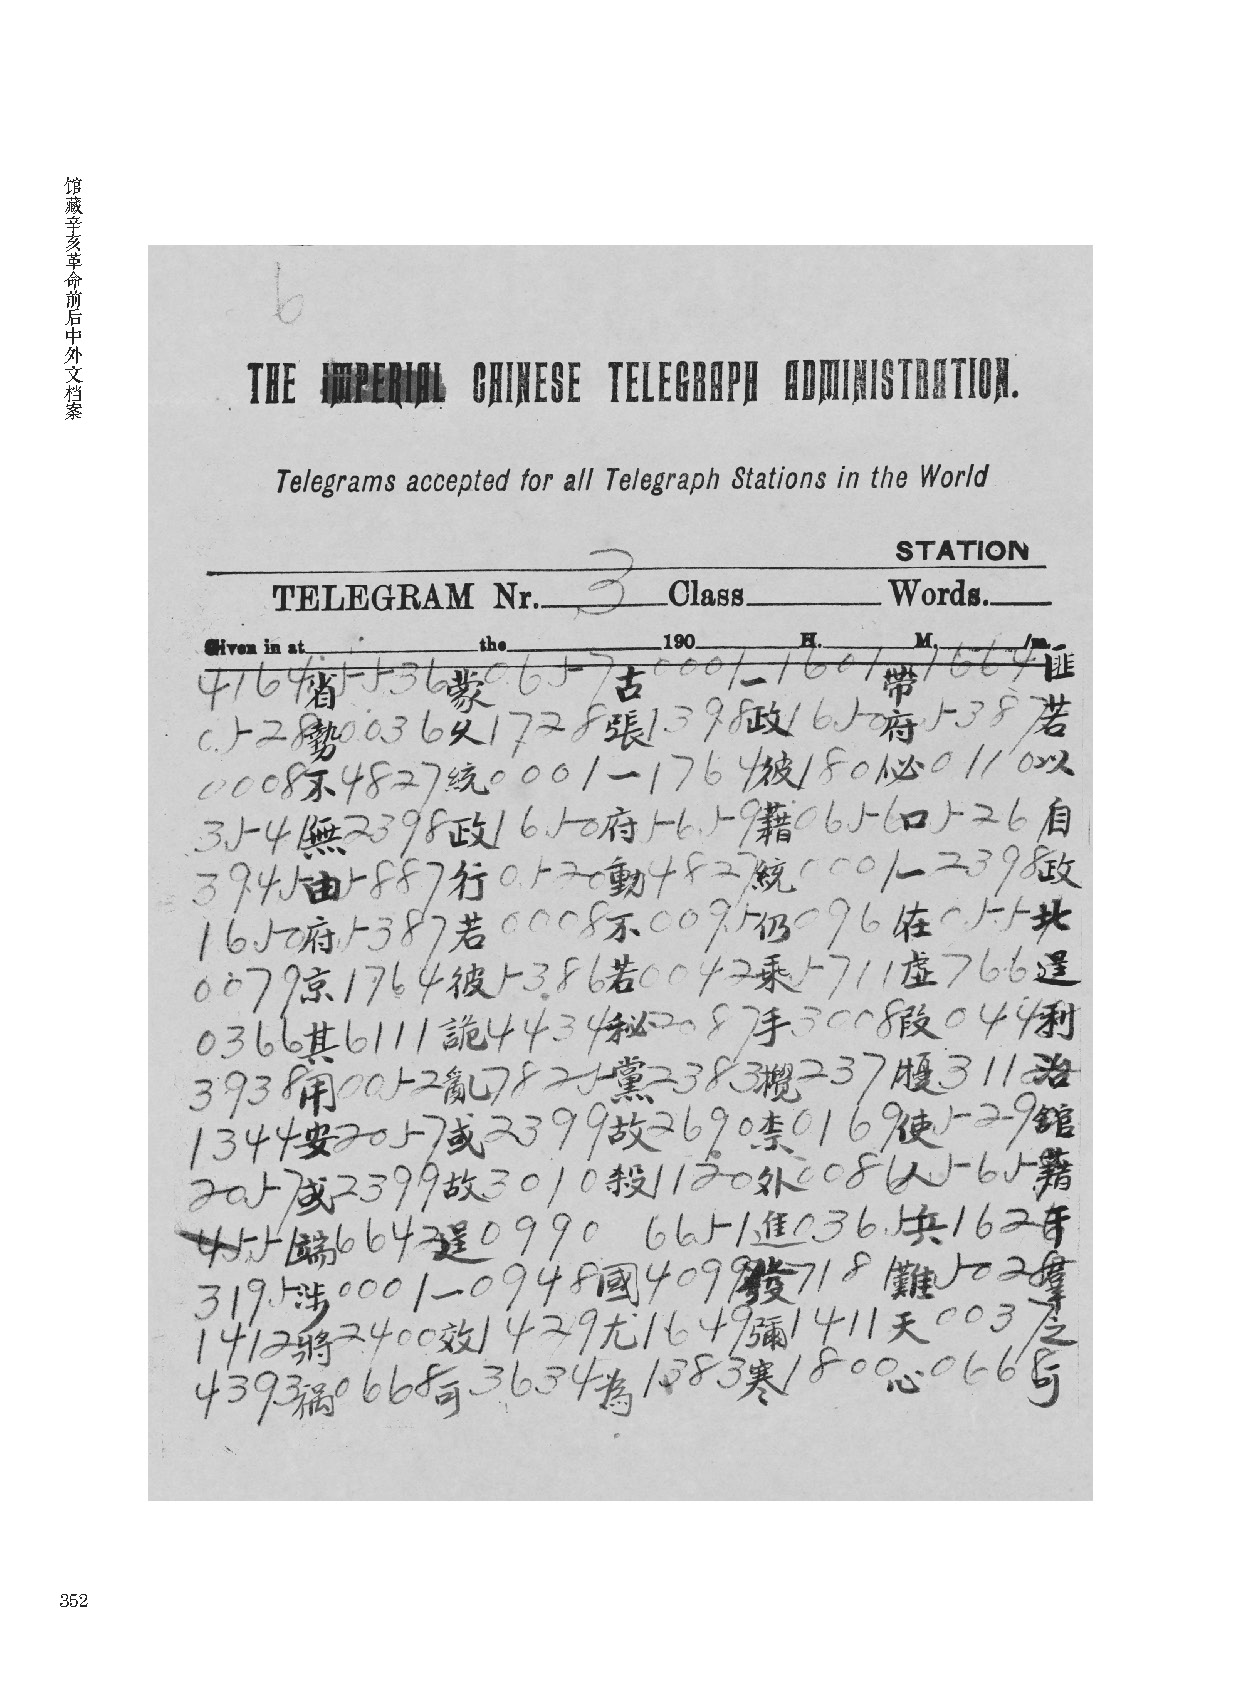 馆藏辛亥革命前后中外文档案
6
THE IMPERIAL CHINESE TELEGRAPH ADMINISTRATION.
Telegrams accepted for all Telegraph Stations in the World
STATION
TELEGRAM Nr. 3 Class Words.
Given in at the 190 H. M. /m.
4164省5536蒙0657古0001一1601帶1664匪
0528勢0036久1728張1398政1650府5387若
0008不4827統0001一1764彼1801必0110以
3541無2398政1650府5659藉0656口526自
3945由5887行0520動4827統0001一2398政
1650府5387若0008不0095仍096在0555北
0079京1764彼5386若0042乘5711虛766逞
0366其6111詭4434秘2087手3008段0448利
3938用0052亂7825黨2383攪237擾311治
1344安2057或2399故2690柰0169使529館
2057或2399故3010殺1120外0086人565藉
4551端6642逞0990 6651進0365兵162年
3195涉0001一0948國4099發7181難5028羣
1412將2400效1429尤1649彌1411天0037之
4393禍0668可3634為1383寒1800心0668可
352